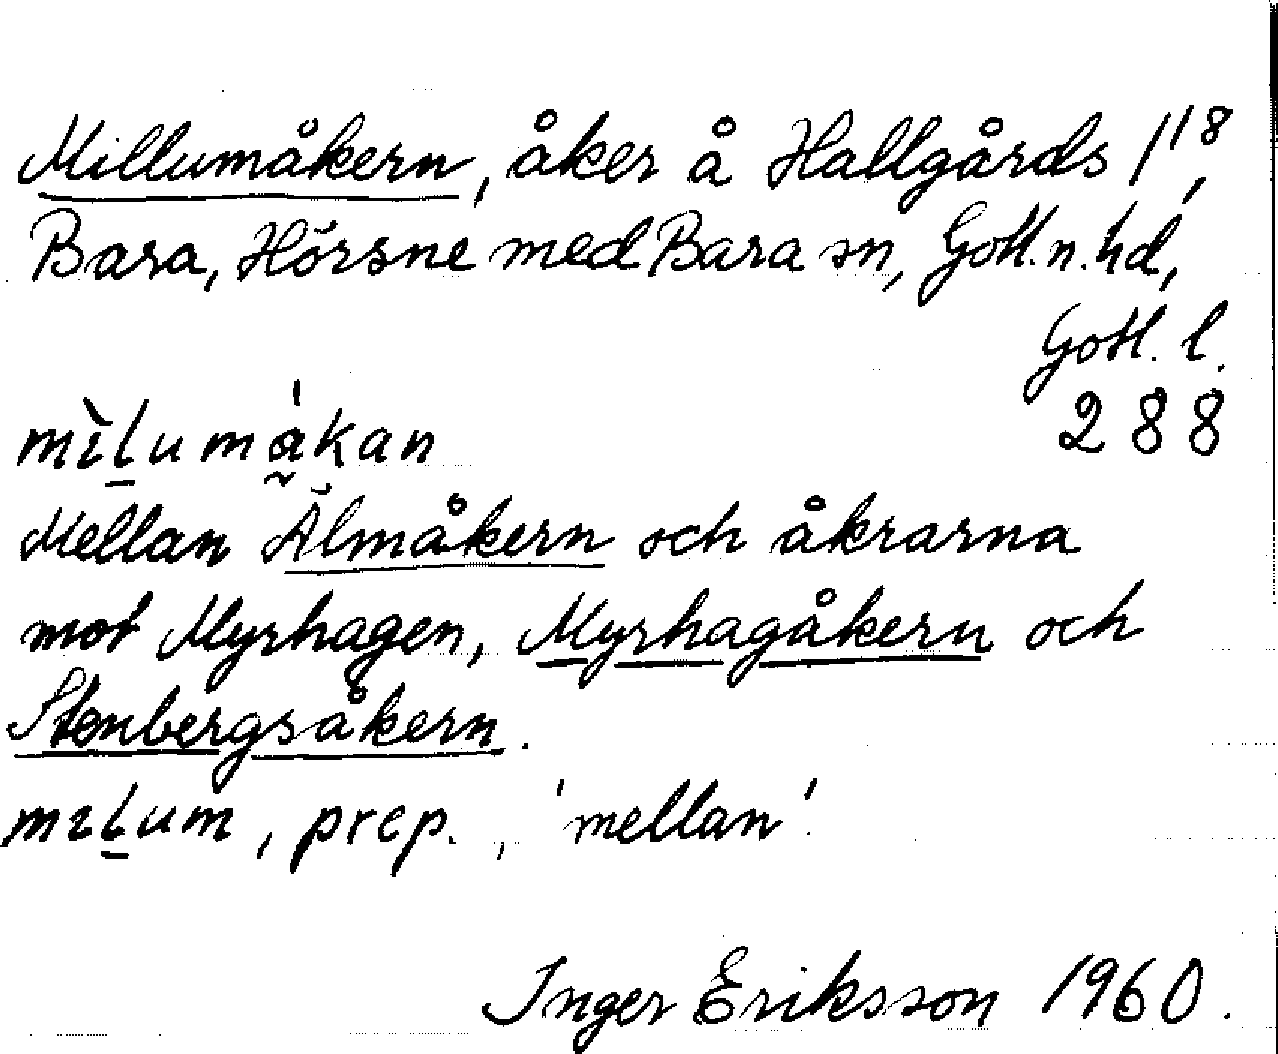 Millumåkern, åker å Hallgårds 1¹⁸,
Bara, Hörsne med Bara sn, Gotl. n. hd,
Gotl. l.
288
mìḻumákan
Mellan Älmåkern och åkrarna
mot Myrhagen, Myrhagåkern och
Stenbergsåkern.
mɩḻum, prep., 'mellan'.
Inger Eriksson 1960.